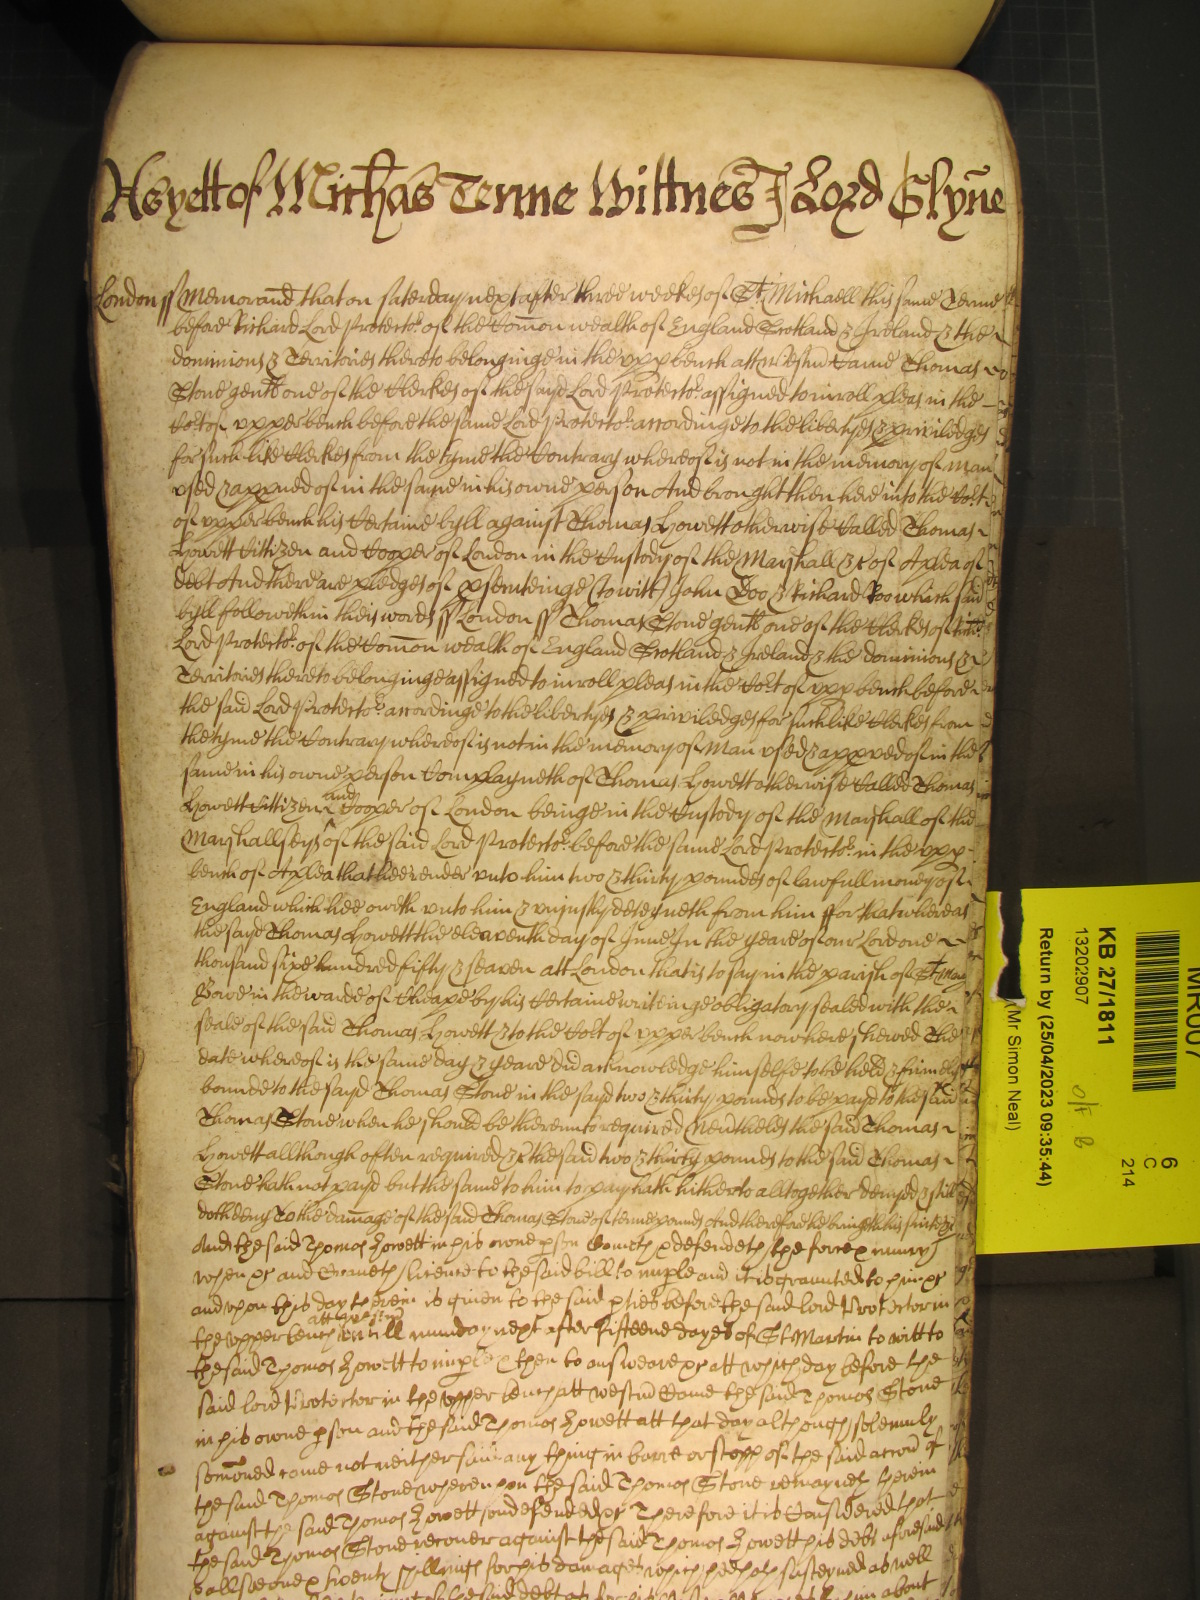 As yett of Mich'as Terme Wittnes J Lord Glyne
London ss Memorand that on saterday next after three weekes of St Michaell this same Terme
before Richard Lord Protector of the Com̄on wealth of England Scotland & Ireland & the
dominions & Territories thereto belonginge in the upp bench att Westm̄ Came Thomas
Stone gent one of the Clerkes of the sayd Lord Protector assigned to inroll pleas in the
Co:rt of upper bench before the same Lord Protector accordinge to the libertyes & priviledges
for such like Clerkes from the tyme the Contrary whereof is not in the memory of man
used & appued of in the same in his owne person And brought then here into the Co:rt
of upper bench his Certaine byll against Thomas Howett otherwise Called Thomas
Howett Cittizen and Cooper of London in the Custody of the Marshall &c of A plea of
debt And there are pledges of psecuteinge (to witt) John Doo & Richard Roo which said
byll followeth in theis words ss London ss Thomas Stone gent one of the Clerkes of the
Lord Protector of the Com̄on wealth of England Scotland & Ireland & the dominions &
Territories thereto belonginge assigned to inroll pleas in the Co:rt of upp bench before
the said Lord Protector accordinge to the libertyes & priviledges for such like Clerkes from
the tyme the Contrary whereof is not in the memory of Man used & appved of in the
same in his owne person Complayneth of Thomas Howett otherwise Called Thomas
Howett Cittizen and Cooper of London beinge in the Custody of the Marshall of the
Marshallseys of the said Lord Protector before the same Lord Protector in the upp
bench of A plea that hee render unto him two & thirty poundes of lawfull money of
England which hee oweth unto him & unjustly deteyneth from him ffor that whereas
the sayd Thomas Howett the eleaventh day of June In the yeare of our Lord one
thousand sixe hundred fifty & seaven att London that is to say in the parish of St Mary
Bowe in the warde of Cheape by his Certaine writinge obligatory sealed with the
seale of the said Thomas Howett & to the Co:rt of upper bench now here shewed The
date whereof is the same day & yeare did acknowledge himselfe to be held & firmely
bounde to the sayd Thomas Stone in the sayd two & thirty pounds to be payd to the said
Thomas Stone when he should be thereunto required Nevertheles the said Thomas
Howett allthough often required &c the said two & thirty pounds to the said Thomas
Stone hath not payd but the same to him to pay hath hitherto alltogether denyed & still
doth deny To the dam̄age of the said Thomas Stone of tenne pounds And therefore he bringeth his suite &c
And the said Thomas Howett in his owne pson Cometh & defendeth the force & iniury
when &c and Craveth licence to the said bill to imple and it is graunted to him &c
and upon this day therein is given to the said pties before the said lord Protector in
the upper bench att Westm̄ untill munday next after fifteene dayes of St Martin to witt to
the said Thomas Howett to imple & then to answeare &c att which day before the
said lord Protector in the upper bench att westm̄ Came the said Thomas Stone
in his owne pson and the said Thomas Howett att that day although solemnly
som̄oned came not neither said any thing in barre or stopp of the said accon of
the said Thomas Stone whereupon the said Thomas Stone remaynes therein
against the said Thomas Howett undefended &c Therefore it is Considered that
the said Thomas Stone recover against the said Thomas Howett his debt aforesaid
& allsoe one & twenty shillings for his damages which he hath susteyned as well
of the said debt as for his him about
MR007
6
C
214
KB 27/1811
13202907
Return by (25/04/2023 09:35:44)
(Mr Simon Neal)